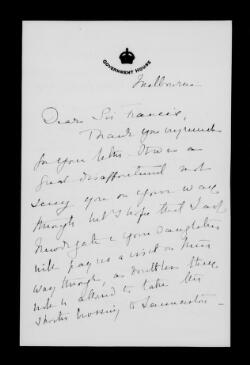 GOVERNMENT HOUSE
Melbourne
Dear Sir Francis,
Thank you very much
for your letter. It was a
great disappointment not
seeing you on your way
through but I hope that Lady
Newdegate & your daughters
will pay us a visit on their
way through, as doubtless they
will be allowed to take the
shorter crossing to Launceston